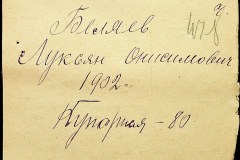 Беляев
Лукьян Онисимович
1902.
80